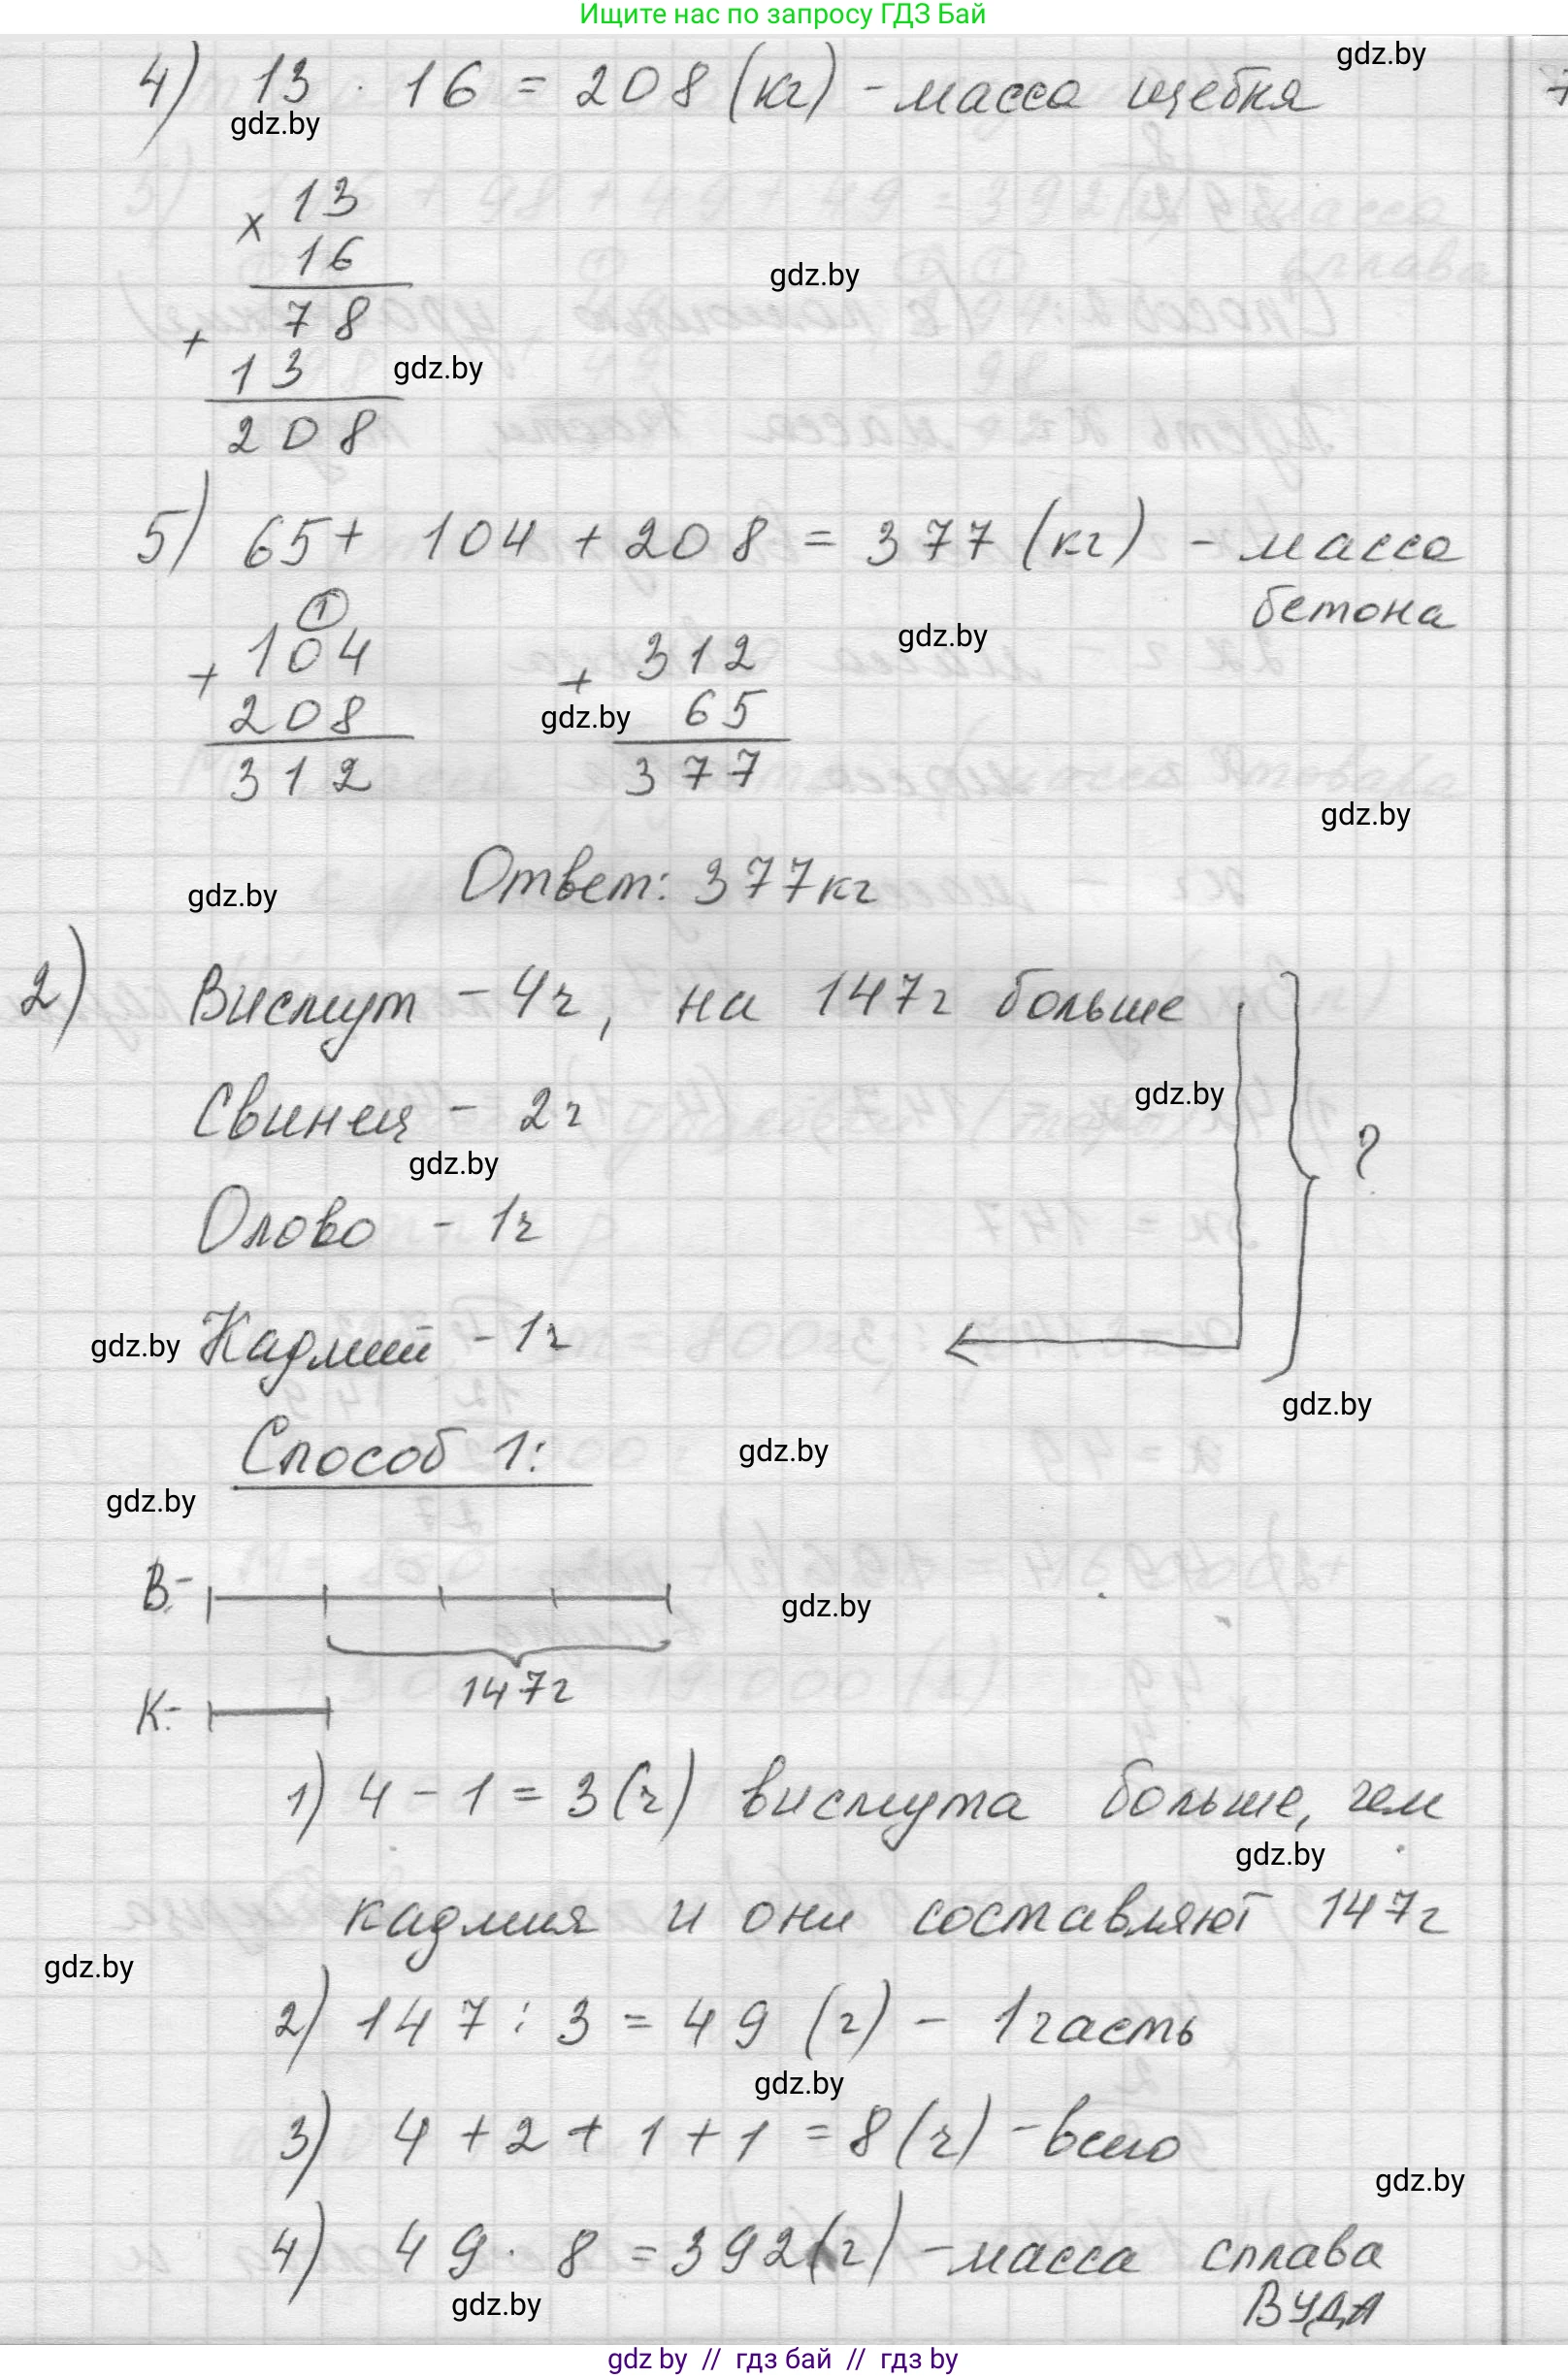 Ищите нас по запросу ГДЗ Бай
gdz.by
4) 13 · 16 = 208 (кг) - масса щебня
gdz.by
× 13
16
gdz.by
78
+
13
gdz.by
208
5) 65 + 104 + 208 = 377 (кг) - масса
бетона
1
gdz.by
+ 104
208
312
+ 312
gdz.by
65
377
gdz.by
Ответ: 377кг
gdz.by
2) Висмут - 4ч, на 147г больше
gdz.by
Свинец - 2ч
?
gdz.by
Олово - 1ч
gdz.by
Кадмий - 1ч
gdz.by
Способ 1:
gdz.by
gdz.by
В:-
gdz.by
147г
К:-
1) 4 - 1 = 3(ч) висмута больше, чем
gdz.by
кадмия и они составляют 147г
gdz.by
2) 147 : 3 = 49 (г) - 1 часть
gdz.by
3) 4 + 2 + 1 + 1 = 8 (ч) - всего
gdz.by
4) 49 · 8 = 392 (г) - масса сплава
ВУДА
gdz.by
gdz by // гдз бай // гдз by